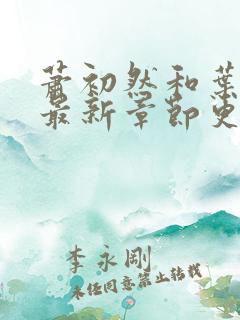 萧初然和葉
最新章節更
李永剛
未经同意禁止转载